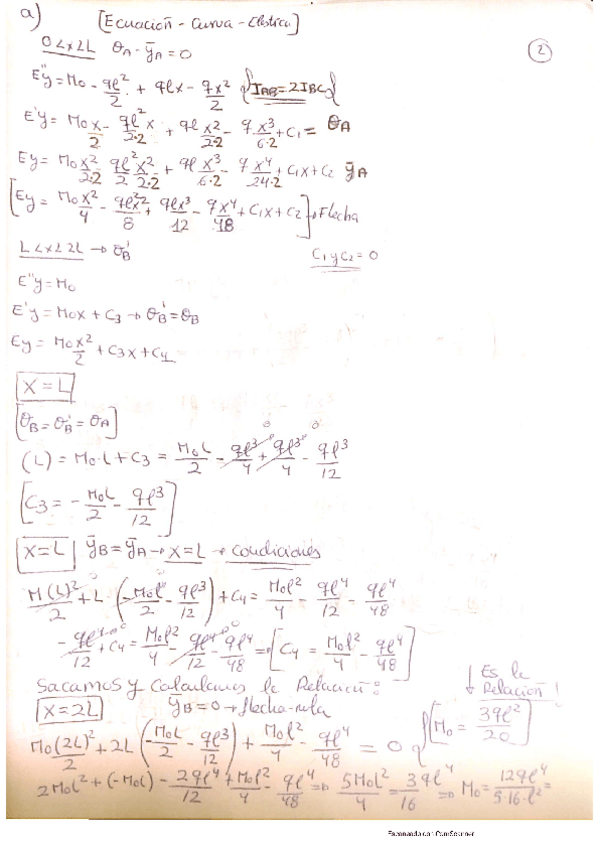 a) [Ecuación - Curva - Elástica]
0<x<L θA - ȳA = 0 (2)
E''y = M0 - ql²/2 + qlx - qx²/2 {IAB = 2IBC}
E'y = M0x/2 - ql²x/2·2 + qlx²/2·2 - qx³/6·2 + C1 = θA
Ey = M0x²/2·2 - ql²/2 x²/2·2 + ql x³/6·2 - q x⁴/24·2 + C1x + C2 ȳA
[Ey = M0x²/4 - ql²x²/8 + qlx³/12 - qx⁴/48 + C1x + C2] → Flecha
L<x<2L → θB' C1 y C2 = 0
E''y = M0
E'y = M0x + C3 → θB' = θB
Ey = M0x²/2 + C3x + C4
X = L
[θB = θB' = θA]
(L) = M0·L + C3 = M0L/2 - ql³/4 + ql³/4 - ql³/12
[C3 = - M0L/2 - ql³/12]
X = L ȳB = ȳA → x = L → condiciones
M(L)²/2 + L·(-M0l/2 - ql³/12) + C4 = M0l²/4 - ql⁴/12 - ql⁴/48
- ql⁴/12 + C4 = M0l²/4 - ql⁴/12 - ql⁴/48 => [C4 = M0l²/4 - ql⁴/48]
Sacamos y Calculamos la Relación: ↓ Es la Relación!
X = 2L ȳB = 0 → flecha-nula
M0(2L)²/2 + 2L(-M0L/2 - ql³/12) + M0l²/4 - ql⁴/48 = 0 {[M0 = 3ql²/20]
2M0L² + (-M0L) - 2ql⁴/12 + M0l²/4 - ql⁴/48 => 5M0l²/4 = 3/16 ql⁴ => M0 = 12ql⁴/5·16·l² =
Escaneado con CamScanner